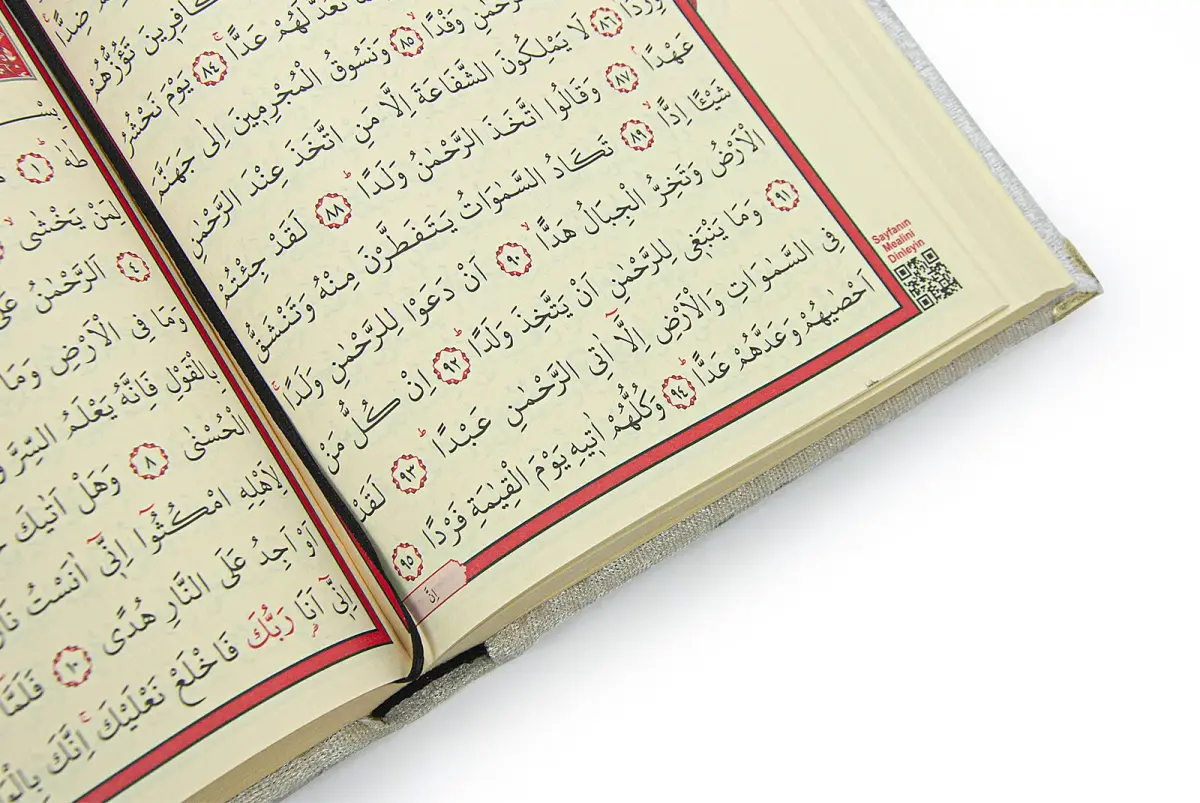 ضِدًّا
كَافِرٖينَ تَؤُزُّهُمْ
نَعُدُّ لَهُمْ عَدًّا ﴿٨٤﴾ يَوْمَ نَحْشُرُ
وَفْدًا ﴿٨٥﴾ وَنَسُوقُ الْمُجْرِمٖينَ اِلٰى جَهَنَّمَ
وِرْدًا ﴿٨٦﴾ لَا يَمْلِكُونَ الشَّفَاعَةَ اِلَّا مَنِ اتَّخَذَ عِنْدَ الرَّحْمٰنِ
عَهْدًا ﴿٨٧﴾ وَقَالُوا اتَّخَذَ الرَّحْمٰنُ وَلَدًا ﴿٨٨﴾ لَقَدْ جِئْتُمْ
شَيْـًٔا اِدًّا ﴿٨٩﴾ تَكَادُ السَّمٰوَاتُ يَتَفَطَّرْنَ مِنْهُ وَتَنْشَقُّ
الْاَرْضُ وَتَخِرُّ الْجِبَالُ هَدًّا ﴿٩٠﴾ اَنْ دَعَوْا لِلرَّحْمٰنِ وَلَدًا
﴿٩١﴾ وَمَا يَنْبَغٖي لِلرَّحْمٰنِ اَنْ يَتَّخِذَ وَلَدًا ﴿٩٢﴾ اِنْ كُلُّ مَنْ
فِي السَّمٰوَاتِ وَالْاَرْضِ اِلَّٓا اٰتِي الرَّحْمٰنِ عَبْدًا ﴿٩٣﴾ لَقَدْ
اَحْصٰيهُمْ وَعَدَّهُمْ عَدًّا ﴿٩٤﴾ وَكُلُّهُمْ اٰتٖيهِ يَوْمَ الْقِيٰمَةِ فَرْدًا ﴿٩٥﴾
اِنَّ
Sayfanın
Mealini
Dinleyin
طٰهٰ ﴿١﴾
لِمَنْ يَخْشٰى
﴿٤﴾ اَلرَّحْمٰنُ
وَمَا فِي الْاَرْضِ وَمَا
بِالْقَوْلِ فَاِنَّهُ يَعْلَمُ السِّرَّ
الْحُسْنٰى ﴿٨﴾ وَهَلْ اَتٰيكَ
لِاَهْلِهِ امْكُثُٓوا اِنّٖٓي اٰنَسْتُ
اَوْ اَجِدُ عَلَى النَّارِ هُدًى ﴿١٠﴾ فَلَمَّٓا
اِنّٖٓي اَنَا رَبُّكَ فَاخْلَعْ نَعْلَيْكَ اِنَّكَ